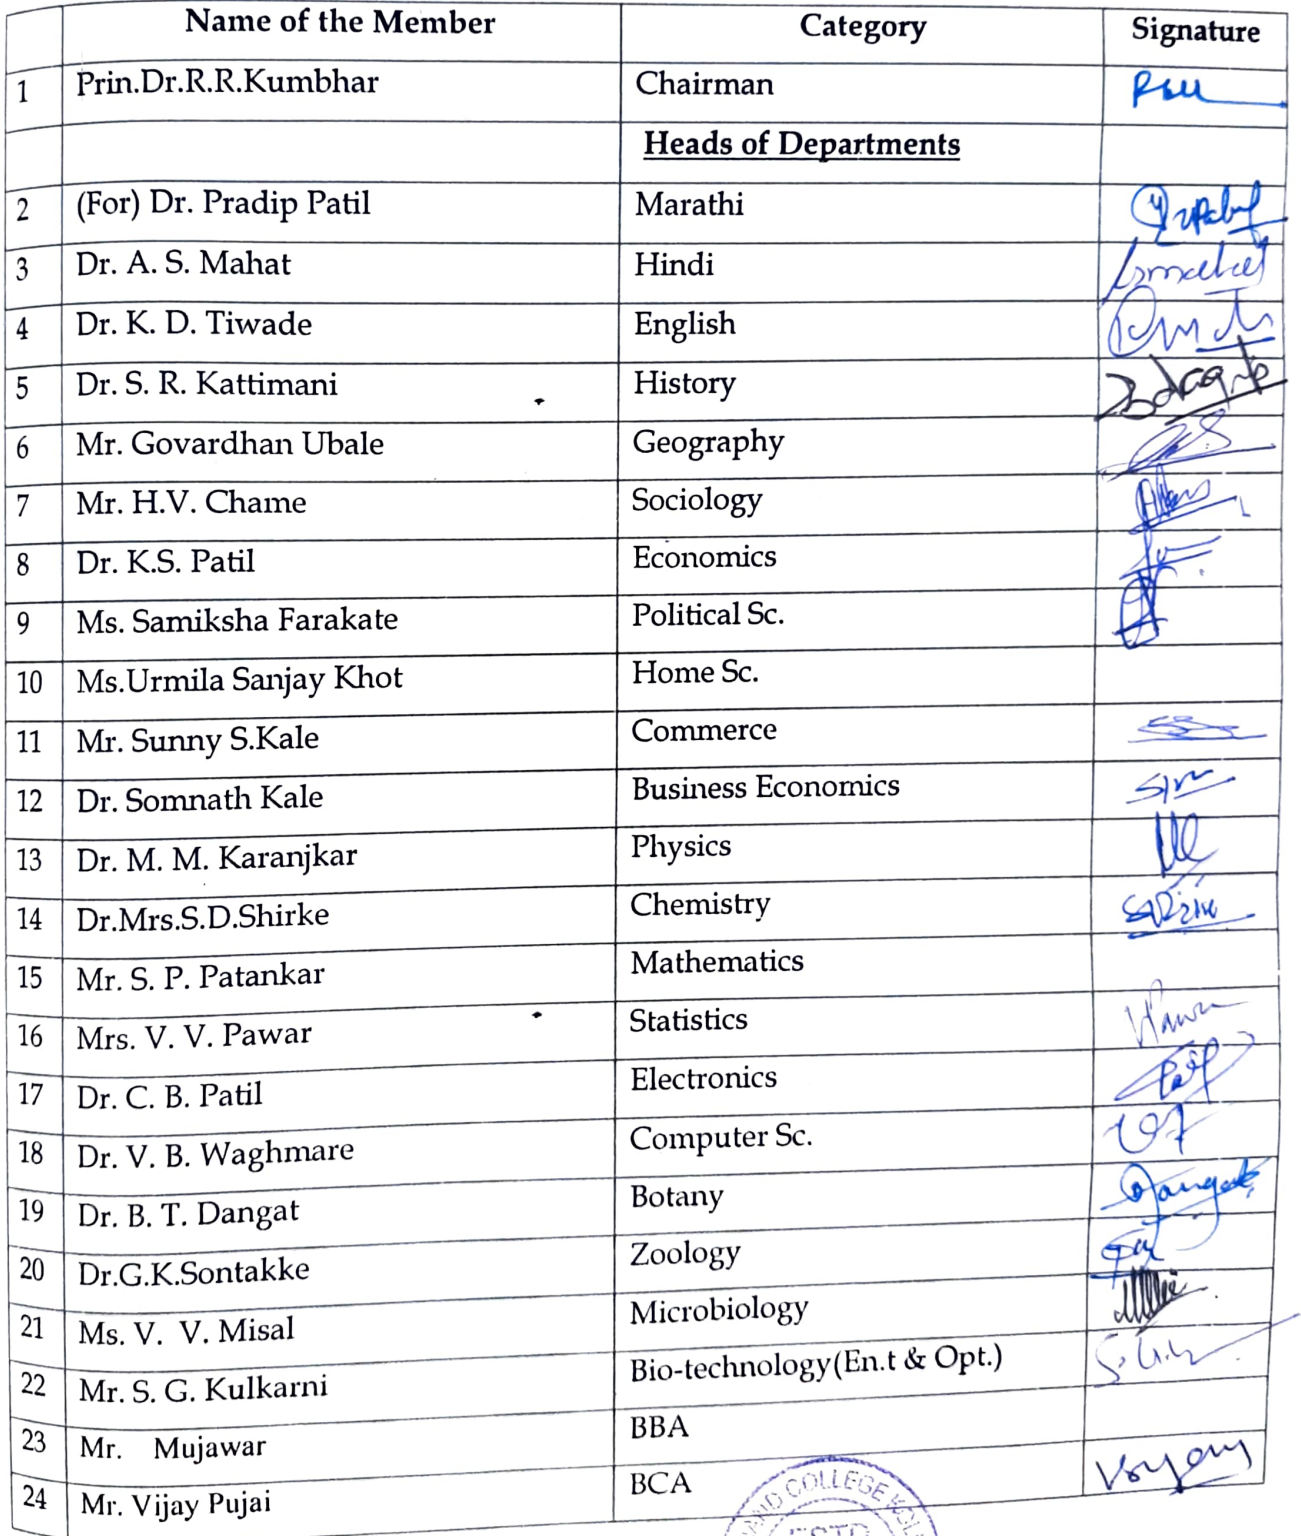 Name of the Member Category Signature
1 Prin.Dr.R.R.Kumbhar Chairman
Heads of Departments
2 (For) Dr. Pradip Patil Marathi
3 Dr. A. S. Mahat Hindi
4 Dr. K. D. Tiwade English
5 Dr. S. R. Kattimani History
6 Mr. Govardhan Ubale Geography
7 Mr. H.V. Chame Sociology
8 Dr. K.S. Patil Economics
9 Ms. Samiksha Farakate Political Sc.
10 Ms.Urmila Sanjay Khot Home Sc.
11 Mr. Sunny S.Kale Commerce
12 Dr. Somnath Kale Business Economics
13 Dr. M. M. Karanjkar Physics
14 Dr.Mrs.S.D.Shirke Chemistry
15 Mr. S. P. Patankar Mathematics
16 Mrs. V. V. Pawar Statistics
17 Dr. C. B. Patil Electronics
18 Dr. V. B. Waghmare Computer Sc.
19 Dr. B. T. Dangat Botany
20 Dr.G.K.Sontakke Zoology
21 Ms. V. V. Misal Microbiology
22 Mr. S. G. Kulkarni Bio-technology(En.t & Opt.)
23 Mr. Mujawar BBA
24 Mr. Vijay Pujai BCA
COLLEGE